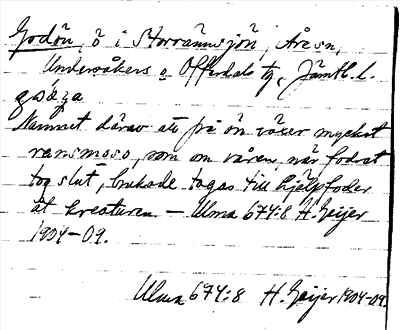 Godön, ö i Storrännsjön, Åre sn,
Undersåkers o Offerdals tg, Jämtl. l.
Namnet därav att på ön växer mycket
ransmoso, som om våren, när fodret
tog slut, brukade tagas till hjälpfoder
åt kreaturen. – Ulma 674:8 H. Geijer
1904–09.
Ulma 674:8 H. Geijer 1904–09.